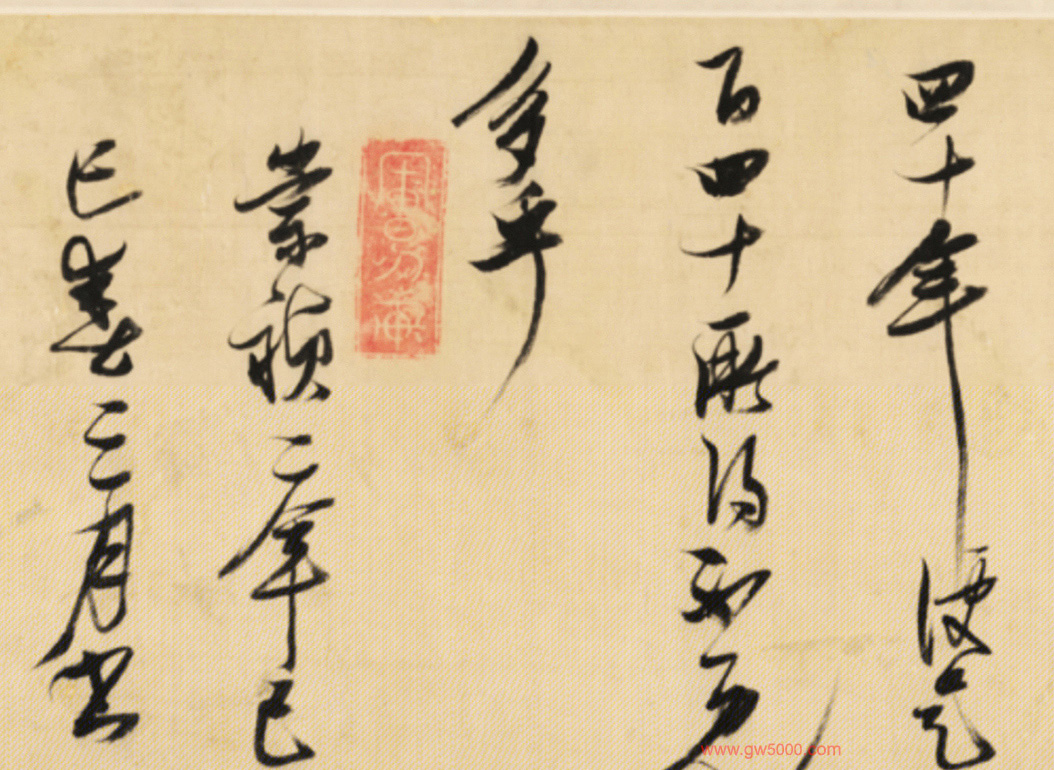 四十年便是
百四十所得不亦
多乎
崇禎二年己
巳春三月書
www.gw5000.com